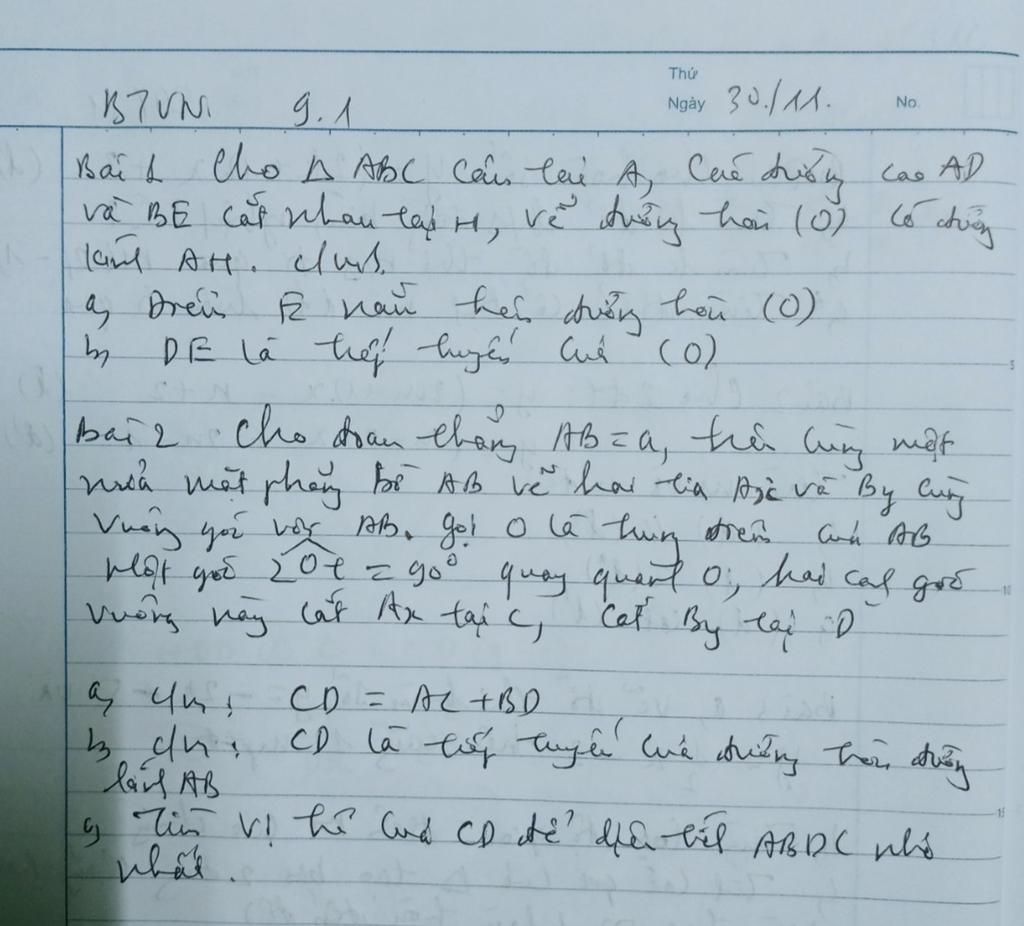 Thứ
Ngày 30/11. No.
BTVN. 9.1
Bài 1 Cho Δ ABC cân tại A, Các đường cao AD
và BE cắt nhau tại H, vẽ đường tròn (O) có đường
kính AH. c/m.
a, Điểm E nằm trên đường tròn (O)
b, DE là tiếp tuyến của (O)
Bài 2 Cho đoạn thẳng AB = a, trên cùng một
nửa mặt phẳng bờ AB vẽ hai tia Ax và By cùng
vuông góc với AB. gọi O là trung điểm của AB
Một góc zOt = 90° quay quanh O, hai cạnh góc
vuông này cắt Ax tại C, Cắt By tại D
a, c/m: CD = AC + BD
b, c/m: CD là tiếp tuyến của đường tròn đường
kính AB
c, Tìm vị trí của CD để diện tích ABDC nhỏ
nhất.